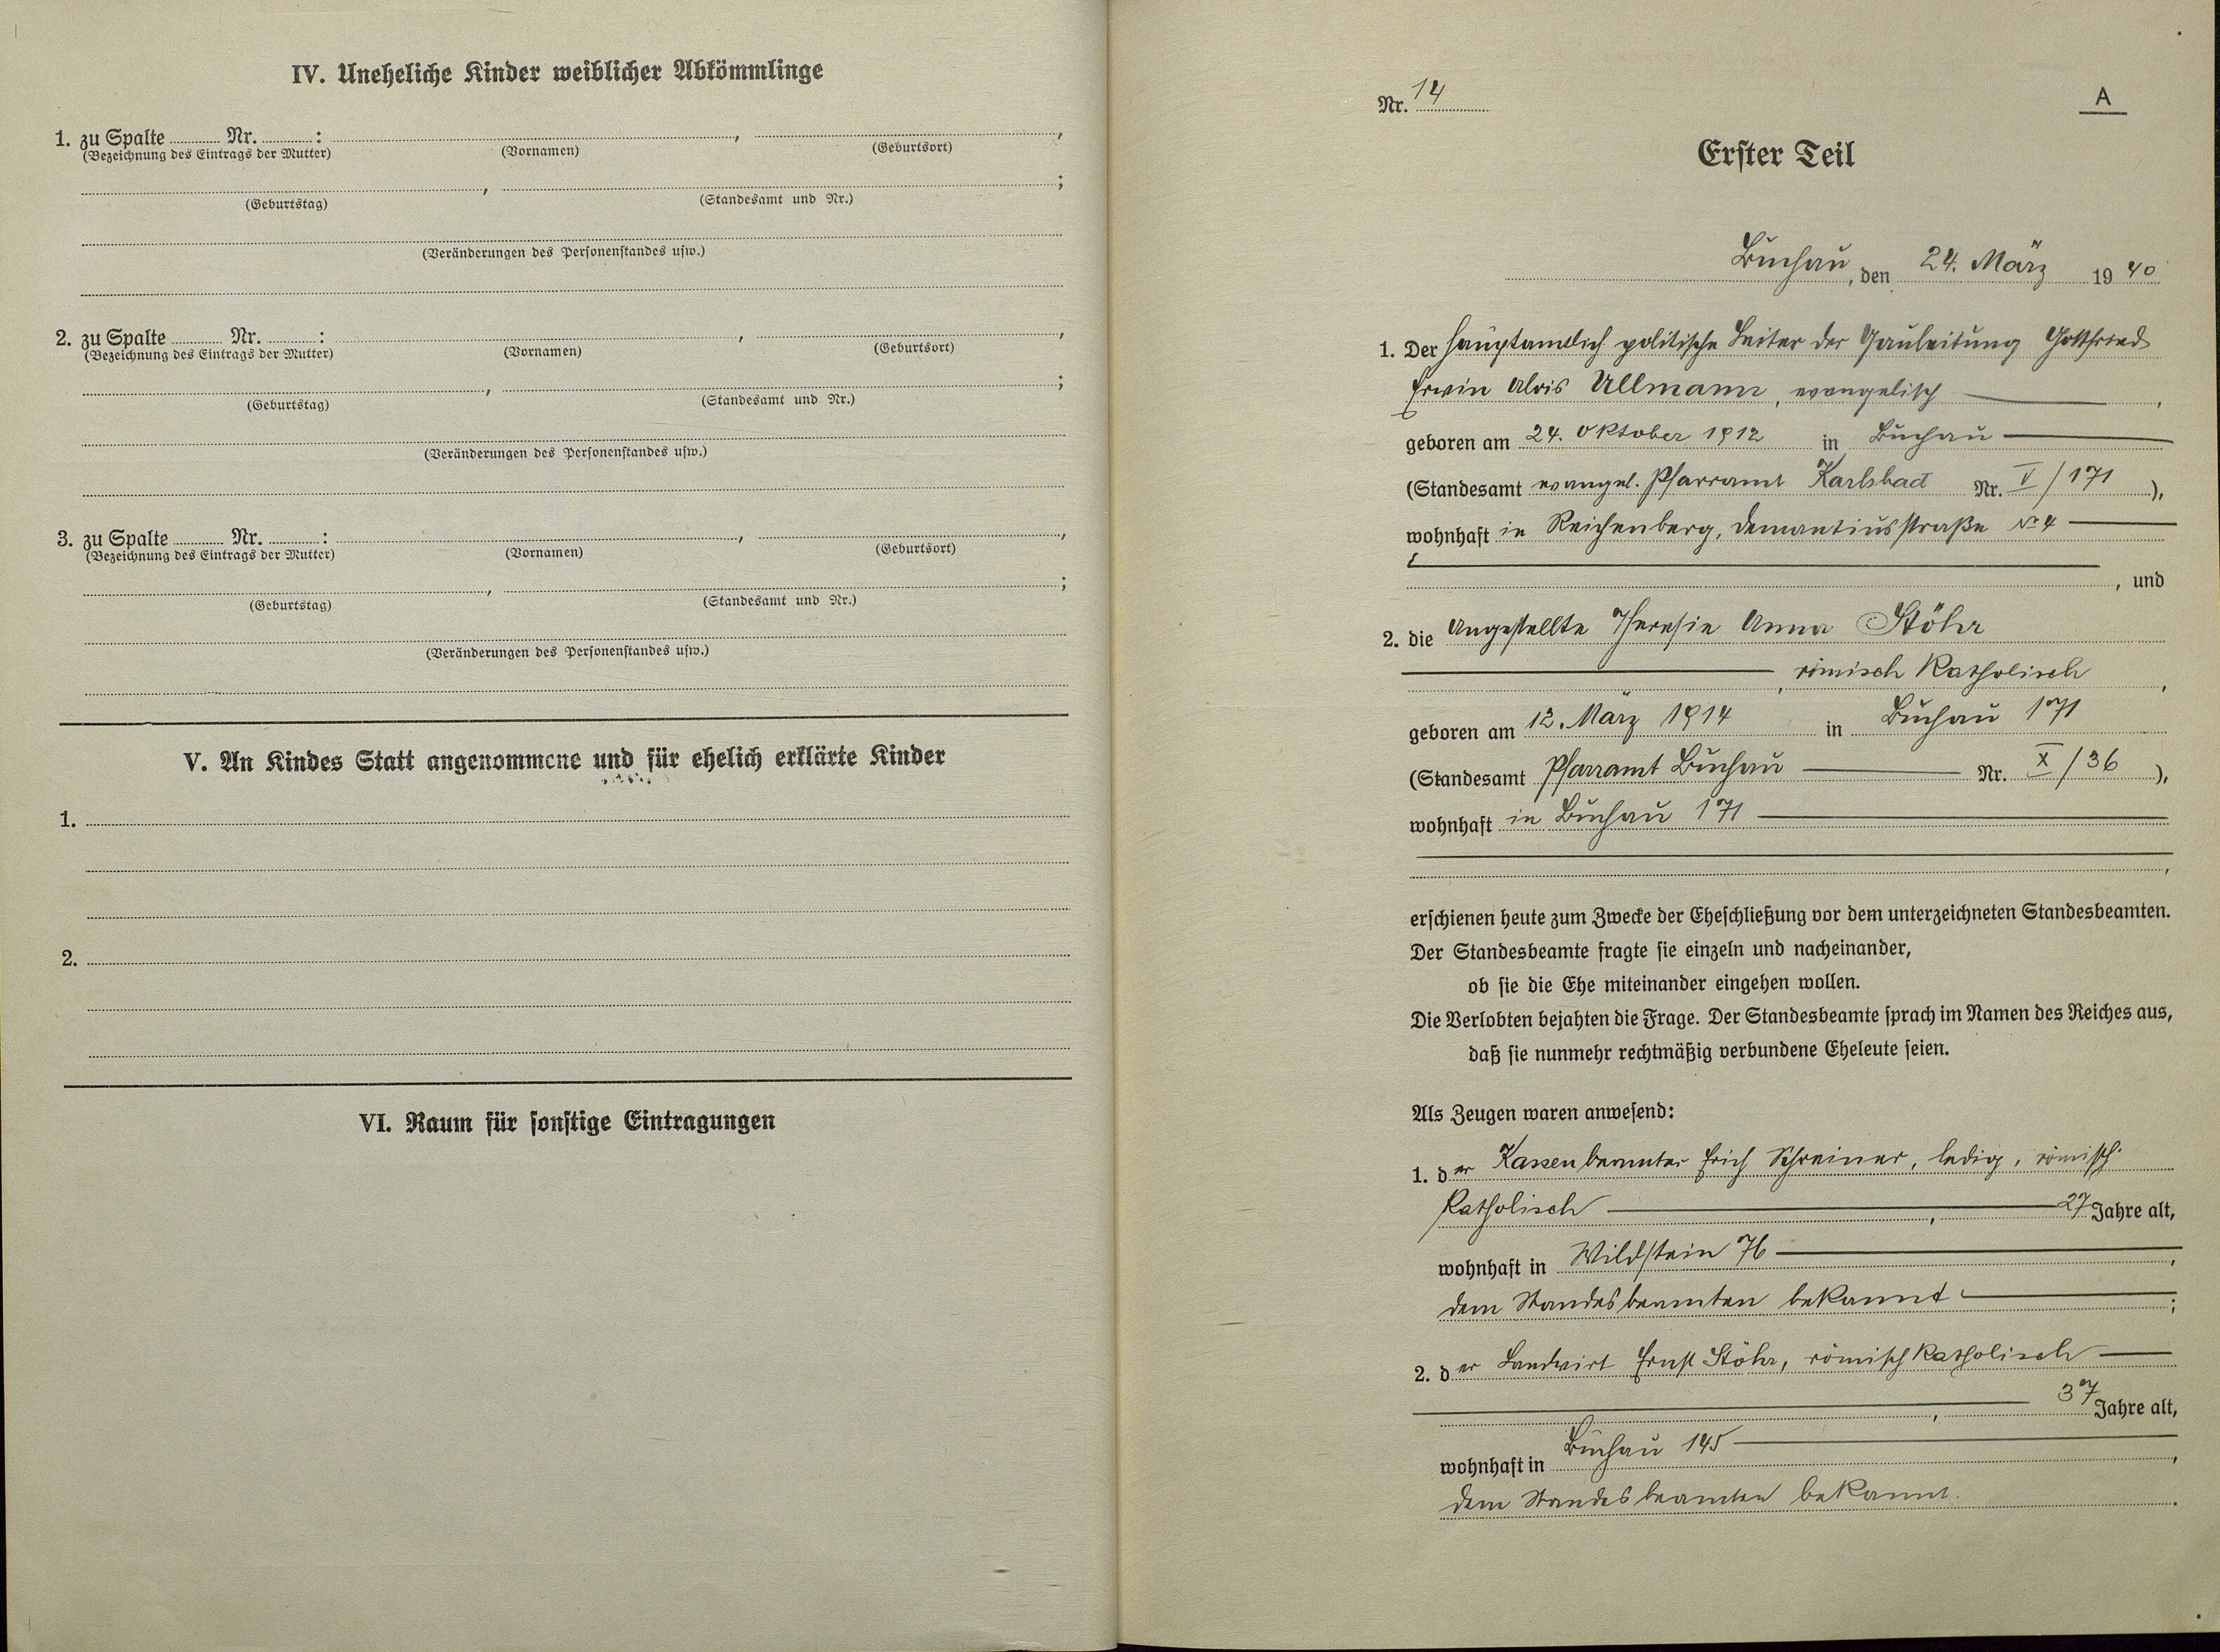 IV. Uneheliche Kinder weiblicher Abkömmlinge
1. zu Spalte Nr. : , ,
(Bezeichnung des Eintrags der Mutter) (Vornamen) (Geburtsort)
, ;
(Geburtstag) (Standesamt und Nr.)
(Veränderungen des Personenstandes usw.)
2. zu Spalte Nr. : , ,
(Bezeichnung des Eintrags der Mutter) (Vornamen) (Geburtsort)
, ;
(Geburtstag) (Standesamt und Nr.)
(Veränderungen des Personenstandes usw.)
3. zu Spalte Nr. : , ,
(Bezeichnung des Eintrags der Mutter) (Vornamen) (Geburtsort)
, ;
(Geburtstag) (Standesamt und Nr.)
(Veränderungen des Personenstandes usw.)
V. An Kindes Statt angenommene und für ehelich erklärte Kinder
1.
2.
VI. Raum für sonstige Eintragungen
Nr. 14 A
Erster Teil
Buchau, den 24. März 1940
1. Der hauptamtlich politische Leiter der Gauleitung Gottfried
Erwin Alois Ullmann, evangelisch ,
geboren am 24. Oktober 1912 in Buchau
(Standesamt evangel. Pfarramt Karlsbad Nr. V/171 ),
wohnhaft in Reichenberg, Demantiusstraße No 4
, und
2. die Angestellte Theresie Anna Stöhr
, römisch katholisch ,
geboren am 12. März 1914 in Buchau 171
(Standesamt Pfarramt Buchau Nr. X/36 ),
wohnhaft in Buchau 171
,
erschienen heute zum Zwecke der Eheschließung vor dem unterzeichneten Standesbeamten.
Der Standesbeamte fragte sie einzeln und nacheinander,
ob sie die Ehe miteinander eingehen wollen.
Die Verlobten bejahten die Frage. Der Standesbeamte sprach im Namen des Reiches aus,
daß sie nunmehr rechtmäßig verbundene Eheleute seien.
Als Zeugen waren anwesend:
1. der Kassenbeamter Erich Schreiner, ledig, römisch
katholisch , 27 Jahre alt,
wohnhaft in Wildstein 76 ,
dem Standesbeamten bekannt ;
2. der Landwirt Ernst Stöhr, römisch katholisch
, 37 Jahre alt,
wohnhaft in Buchau 145 ,
dem Standesbeamten bekannt.